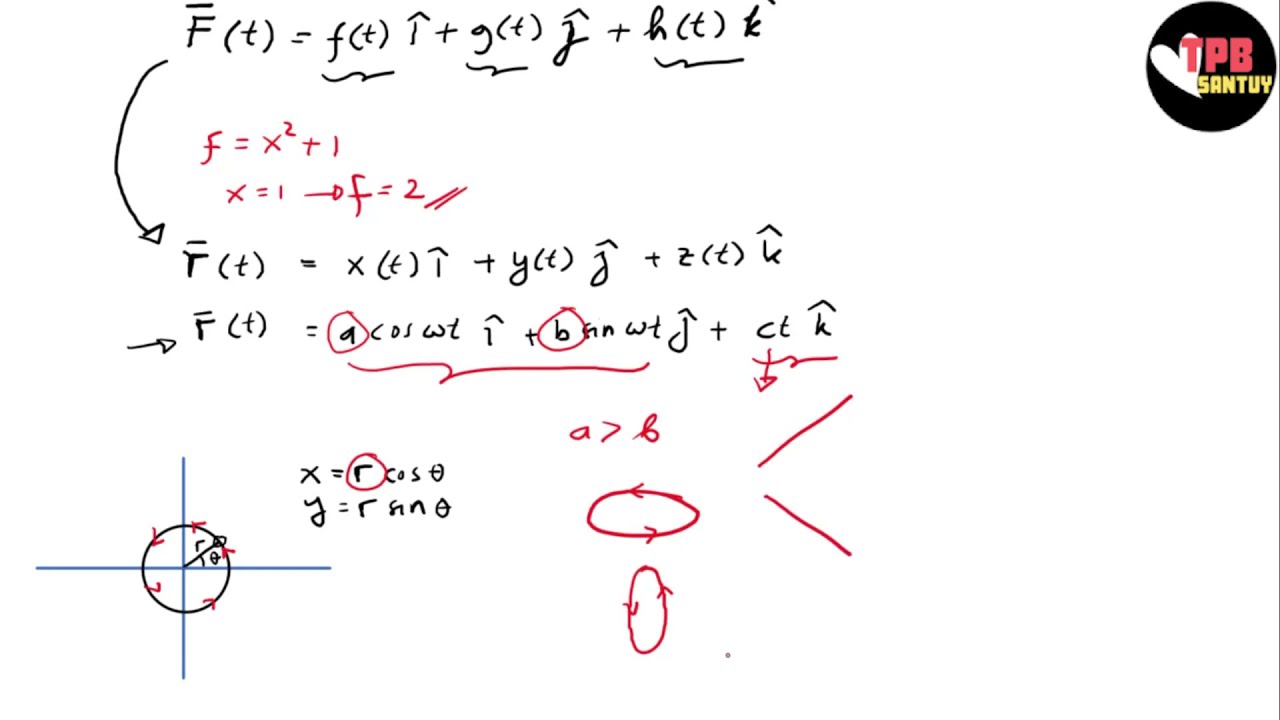 F̄(t) = f(t) î + g(t) ĵ + h(t) k̂
TPB
SANTUY
f = x² + 1
x = 1 → f = 2 //
r̄(t) = x(t) î + y(t) ĵ + z(t) k̂
→ r̄(t) = a cos ωt î + b sin ωt ĵ + ct k̂
a > b
x = r cos θ
y = r sin θ
r
θ